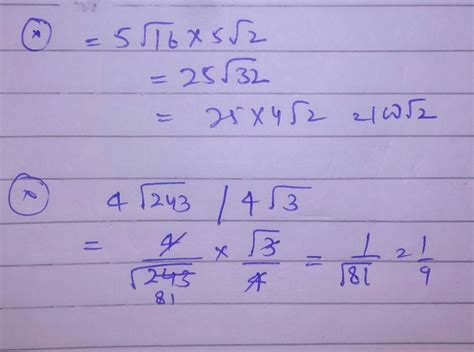 * = 5√16 × 5√2
= 25√32
= 25 × 4√2 = 100√2
* 4√243 / 4√3
= 4/√243 × √3/4 = 1/√81 = 1/9
81